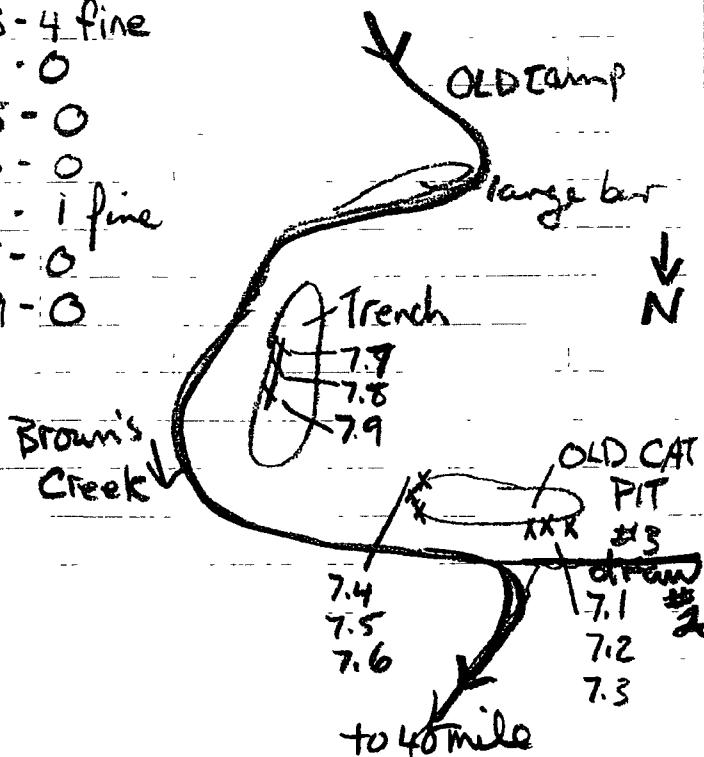 - 4 fine
- 0
- 0
- 0
- 1 fine
- 0
- 0
OLD Camp
large bar
N
Trench
7.7
7.8
7.9
Brown's
Creek
OLD CAT
PIT
#3
drain
#2
7.4
7.5
7.6
7.1
7.2
7.3
to 40 mile